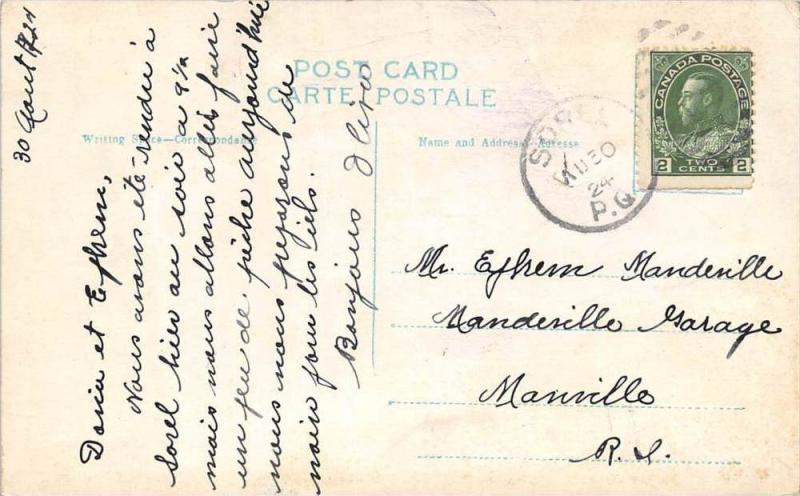 POST CARD
CARTE POSTALE
Writing Space—Correspondance
Name and Address—Adresse
CANADA POSTAGE
2 TWO CENTS 2
SOREL
AU 30
24
P.Q.
30 Aout 1924
Doria et Efhrem,
Nous avons été rendu à
Sorel hier au soir à 9½
mais nous allons aller faire
un peu de pêche aujourd'hui
nous nous préparons de
noir pour les iels.
Bonjour
Mr. Efhrem Mandeville
Mandeville Garage
Manville
R. I.